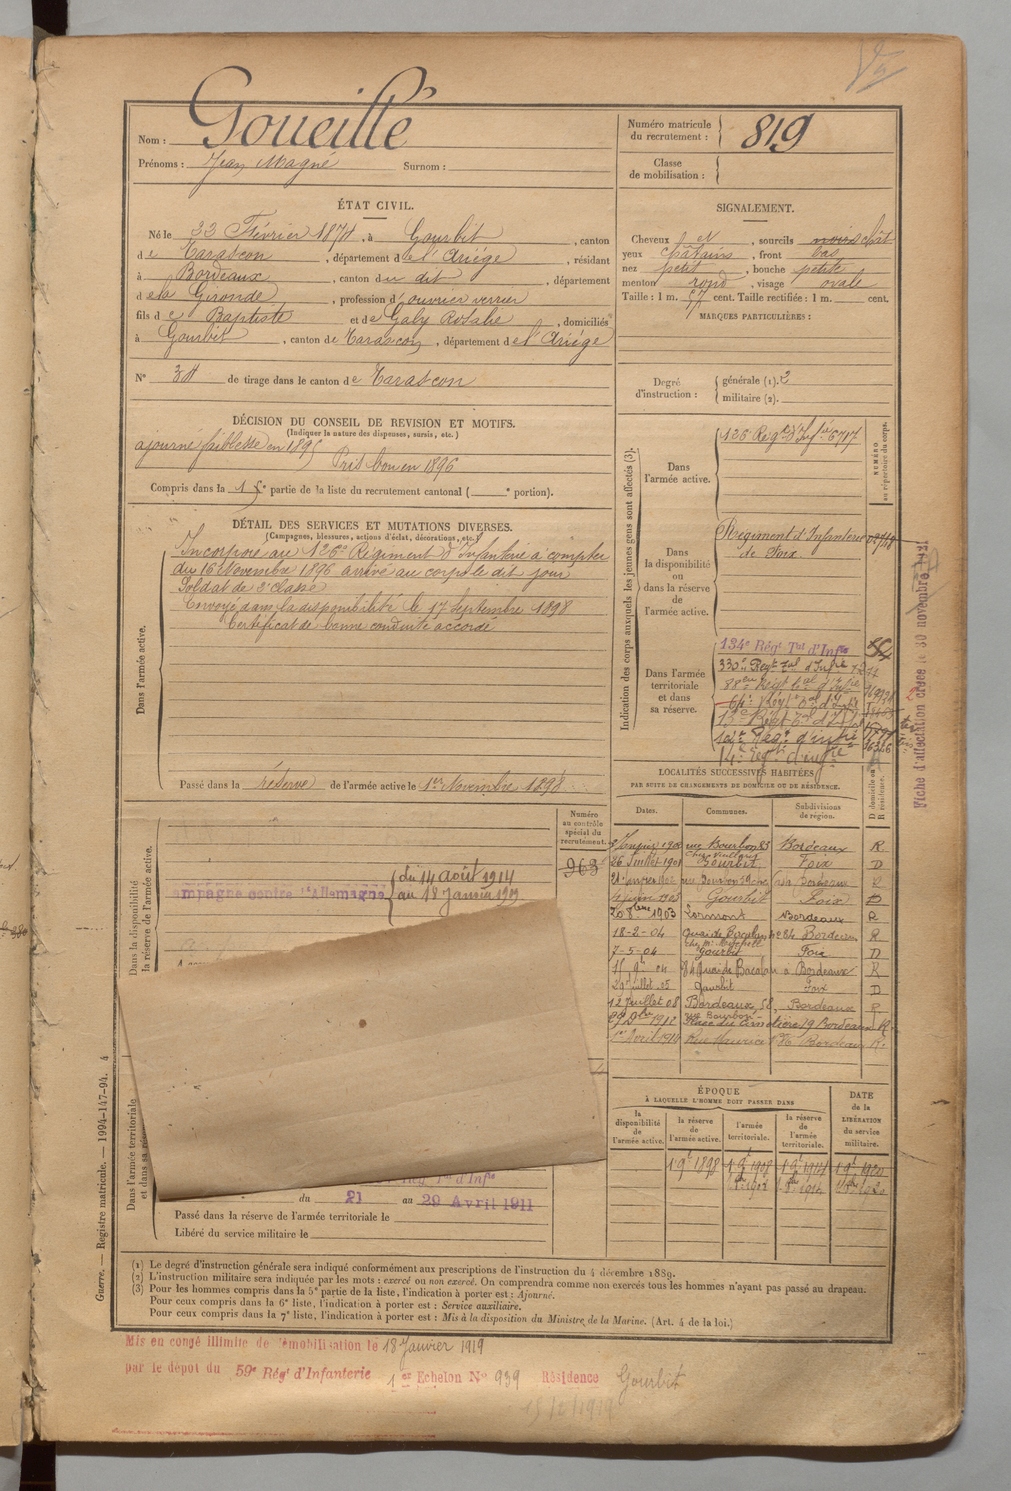 Goueillé
Nom :
Prénoms : Jean Magné Surnom :
Numéro matricule du recrutement : 819
Classe de mobilisation :
ÉTAT CIVIL.
Né le Février 1874, à Gourbit, canton
de Tarascon, département de l'Ariége, résidant
à Bordeaux, canton du dit, département
de la Gironde, profession d'ouvrier verrier
fils de Baptiste et de Gaby Rosalie, domiciliés
à Gourbit, canton de Tarascon, département de l'Ariége
N° 34 de tirage dans le canton de Tarascon
SIGNALEMENT.
Cheveux et, sourcils noirs chât
yeux châtains, front bas
nez petit, bouche petite
menton rond, visage ovale
Taille : 1 m. 57 cent. Taille rectifiée : 1 m. cent.
MARQUES PARTICULIÈRES :
Degré d'instruction : générale (1). 3
militaire (2).
DÉCISION DU CONSEIL DE REVISION ET MOTIFS.
(Indiquer la nature des dispenses, sursis, etc.)
ajourné faiblesse en 1895
Pris bon en 1896
Compris dans la 1re partie de la liste du recrutement cantonal ( portion).
DÉTAIL DES SERVICES ET MUTATIONS DIVERSES.
(Campagnes, blessures, actions d'éclat, décorations, etc.)
Dans l'armée active.
Incorporé au 126e Régiment d'Infanterie à compter
du 16 Novembre 1896 arrivé au corps le dit jour
Soldat de 2e classe
Envoyé dans la disponibilité le 17 Septembre 1898
Certificat de bonne conduite accordé
Passé dans la réserve de l'armée active le 1er Novembre 1898
Indication des corps auxquels les jeunes gens sont affectés (3).
NUMÉRO au répertoire du corps.
Dans l'armée active.
126 Régt d'Infie 6717
Dans la disponibilité ou dans la réserve de l'armée active.
Régiment d'Infanterie
de Foix.
Dans l'armée territoriale et dans sa réserve.
134e Régt Tal d'Infie
330e Régt Tal d'Infie
88e Régt Tal d'Infie
64e Régt Tal d'Infie
Régt d'infie
14e Régt d'infie
Fiche d'affectation créée le 30 novembre
LOCALITÉS SUCCESSIVES HABITÉES
PAR SUITE DE CHANGEMENTS DE DOMICILE OU DE RÉSIDENCE.
Dates. Communes. Subdivisions de région. D domicile ou R résidence.
rue Bourbon 85 Bordeaux R
26 Juillet 1901 Gourbit Foix D
Bordeaux R
Gourbit Foix D
20 8bre 1903 Lormont Bordeaux R
18-2-04 Quai de Bacalan 84 Bordeaux R
7-5-04 Gourbit Foix D
84 Quai de Bacalan à Bordeaux R
29 Juillet 05 Gourbit Foix D
12 Juillet 08 Bordeaux, 58, rue Bourbon Bordeaux R
1912 Place du Cimetière 19 Bordeaux R.
1er Avril 1914 Rue Maurice Bordeaux R.
Numéro au contrôle spécial du recrutement.
963
Dans la disponibilité
la réserve de l'armée active.
ampagne contre l'Allemagne du 14 août 1914
au 18 Janvier 1919
Dans l'armée territoriale
Régt Tal d'Infie
du 21 au 29 Avril 1911
Passé dans la réserve de l'armée territoriale le
Libéré du service militaire le
ÉPOQUE
À LAQUELLE L'HOMME DOIT PASSER DANS
la disponibilité de l'armée active.
la réserve de l'armée active.
l'armée territoriale.
la réserve de l'armée territoriale.
DATE de la LIBÉRATION du service militaire.
1.9e 1898 1.9e 1908 1.9e 1914 1.9e 1920
Guerre. — Registre matricule. — 1994-147-94. 4
(1) Le degré d'instruction générale sera indiqué conformément aux prescriptions de l'instruction du 4 décembre 1889.
(2) L'instruction militaire sera indiquée par les mots : exercé ou non exercé. On comprendra comme non exercés tous les hommes n'ayant pas passé au drapeau.
(3) Pour les hommes compris dans la 5e partie de la liste, l'indication à porter est : Ajourné.
Pour ceux compris dans la 6e liste, l'indication à porter est : Service auxiliaire.
Pour ceux compris dans la 7e liste, l'indication à porter est : Mis à la disposition du Ministre de la Marine. (Art. 4 de la loi.)
Mis en congé illimité de démobilisation le 18 Janvier 1919
par le dépot du 59e Régt d'Infanterie 1er Echelon N° 939 Résidence Gourbit
15/2/1919